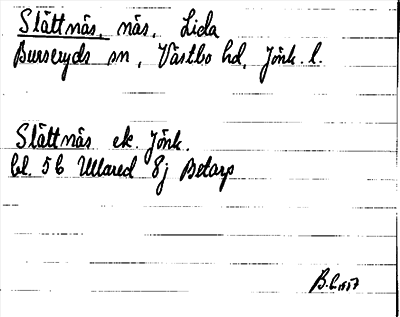 Slättnäs, näs, Lida
Burseryds sn, Västbo hd, Jönk. l.
Slättnäs ek. Jönk.
bl. 5C Ullared 8j Betarp